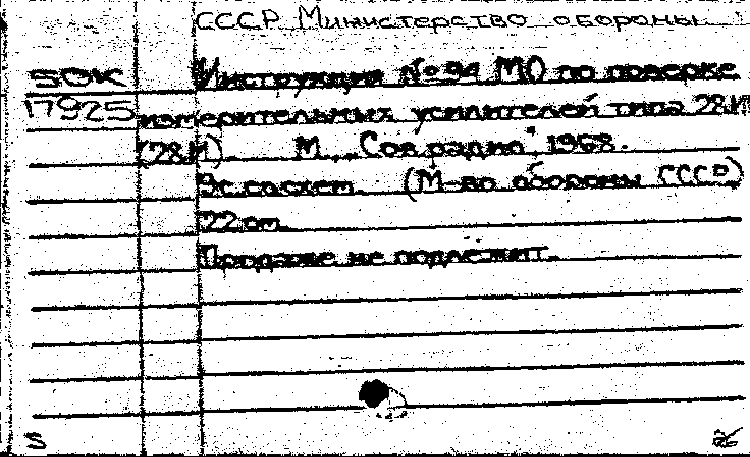 СССР Министерство обороны
50к Инструкция №94 МО по поверке
17925 измерительных усилителей типа 28ИМ
(28И). М., "Сов. радио", 1968.
9с. со схем. (М-во обороны СССР)
22 от.
Продаже не подлежит.